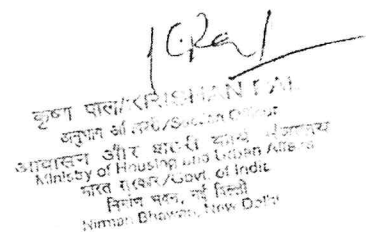 कृष्ण पाल/KRISHAN PAL
अनुभाग अधिकारी/Section Officer
आवासन और शहरी कार्य मंत्रालय
Ministry of Housing and Urban Affairs
भारत सरकार/Govt. of India
निर्माण भवन, नई दिल्ली
Nirman Bhawan, New Delhi